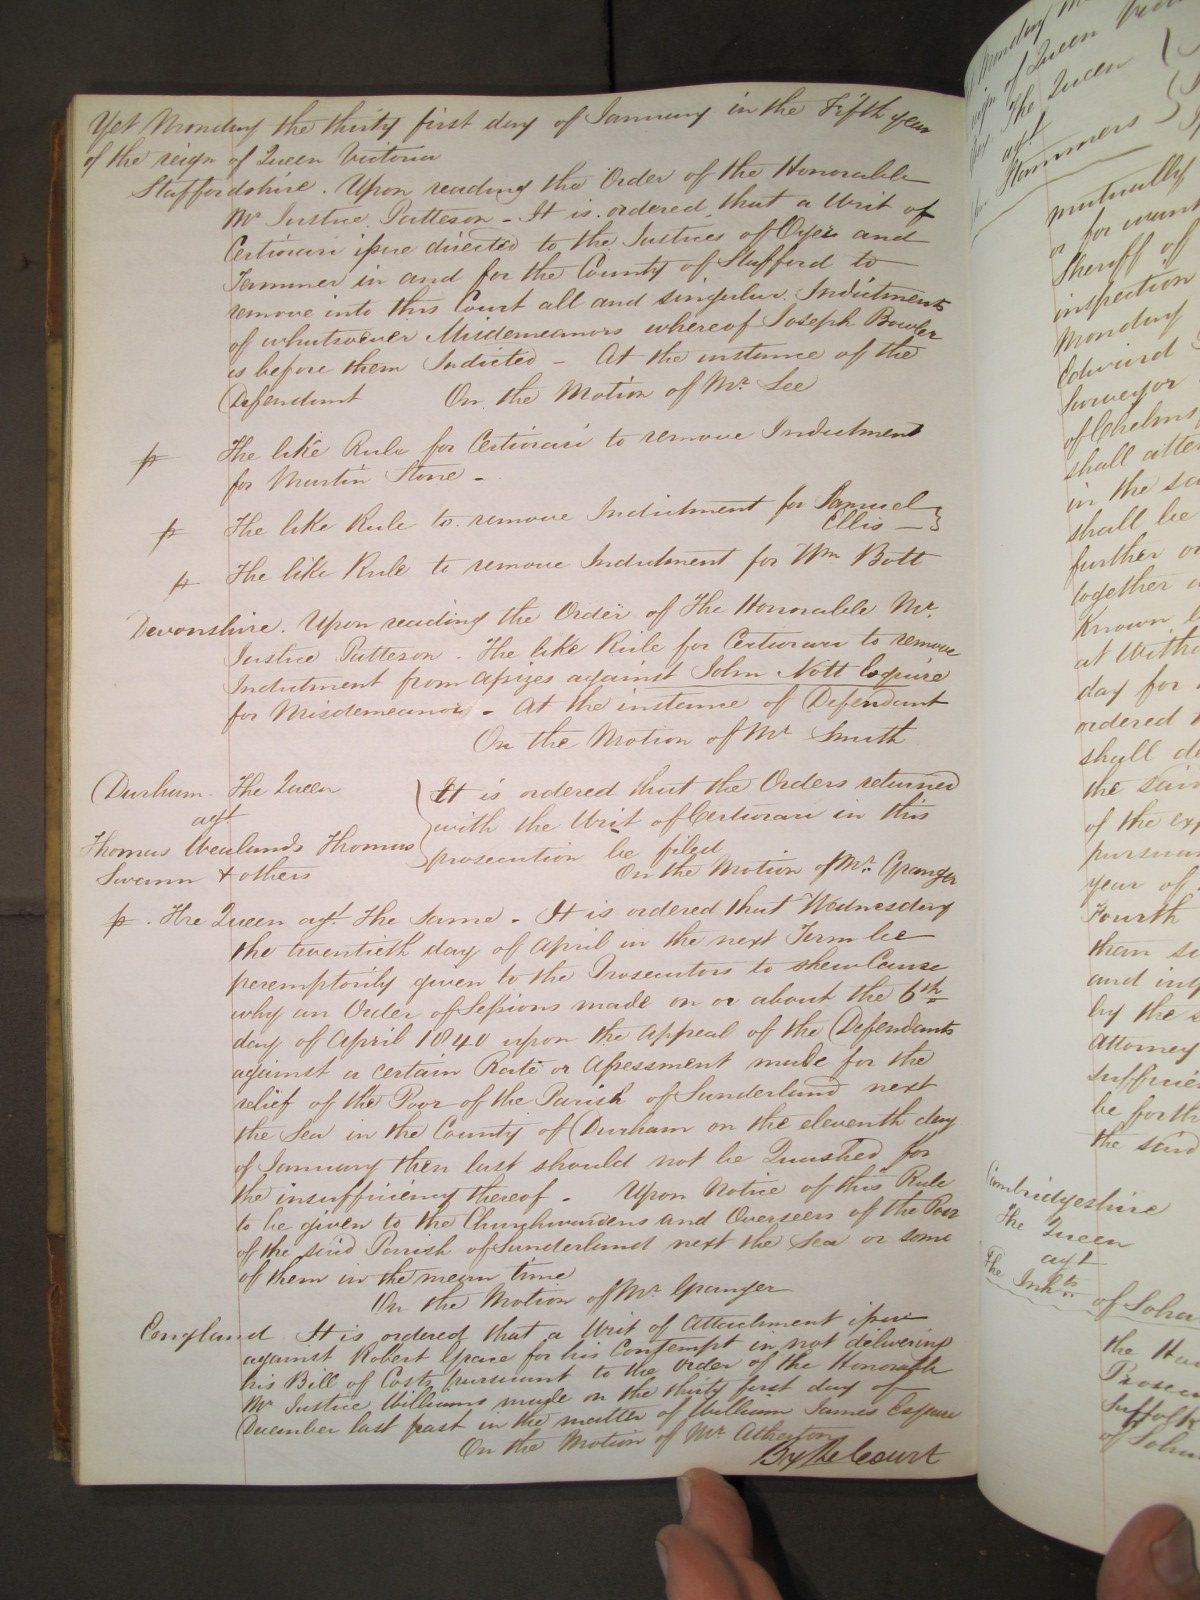 Yet Monday the thirty first day of January in the Fifth year
of the reign of Queen Victoria
Staffordshire. Upon reading the Order of the Honorable
Mr. Justice Patteson - It is ordered that a Writ of
Certiorari issue directed to the Justices of Oyer and
Terminer in and for the County of Stafford to
remove into this Court all and singular Indictments
of whatsoever Misdemeanors whereof Joseph Bowler
is before them Indicted - At the instance of the
Defendant On the Motion of Mr. Lee
The like Rule for Certiorari to remove Indictment
for Martin Stone -
The like Rule to remove Indictment for Samuel
Ellis -
The like Rule to remove Indictment for Wm Bott
Devonshire. Upon reading the Order of The Honorable Mr.
Justice Patteson. The like Rule for Certiorari to remove
Indictment from Assizes against John Nott Esquire
for Misdemeanor - At the instance of Defendant
On the Motion of Mr. Smith
Durham The Queen
agt
Thomas Wealands Thomas
Swann & others
It is ordered that the Orders returned
with the Writ of Certiorari in this
prosecution be filed
On the Motion of Mr. Granger
The Queen agt. The Same - It is ordered that Wednesday
the twentieth day of April in the next Term be
peremptorily given to the Prosecutors to shew Cause
why an Order of Sessions made on or about the 6th
day of April 1840 upon the Appeal of the Defendants
against a certain Rate or Assessment made for the
relief of the Poor of the Parish of Sunderland next
the Sea in the County of Durham on the eleventh day
of January then last should not be Quashed for
the insufficiency thereof - Upon Notice of this Rule
to be given to the Churchwardens and Overseers of the Poor
of the said Parish of Sunderland next the Sea or some
of them in the mean time
On the Motion of Mr. Granger
England It is ordered that a Writ of Attachment issue
against Robert Grace for his Contempt in not delivering
his Bill of Costs pursuant to the Order of the Honorable
Mr Justice Williams made on the thirty first day of
December last past in the matter of William James Esquire
On the Motion of Mr. Atherton
By the Court
Monday
of Queen
The Queen
agt
Hammers
mutually
or for want
Sheriff of
inspection
Monday
Edward
Surveyor
of Chelms
shall atte
in the sa
shall be
further or
together
Known
at
day for
ordered
shall de
the said
of the exp
pursuan
year of
Fourth
than
and
by the
Attorney
suffici
be for th
the said
Cambridgeshire
The Queen
agt
The Inhts
of Soha
the
Prosec
Suffolk
of